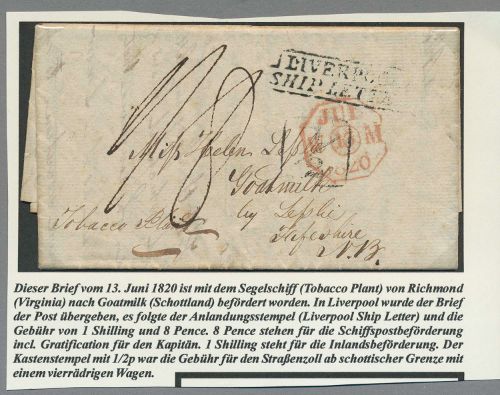 LIVERPOOL
SHIP LETTER
JUL
M 13 M
1820
1/8
Miss Helen Leslie
Goatmilk
by Leslie
Fifeshire
N.B.
Tobacco Plant
Dieser Brief vom 13. Juni 1820 ist mit dem Segelschiff (Tobacco Plant) von Richmond
(Virginia) nach Goatmilk (Schottland) befördert worden. In Liverpool wurde der Brief
der Post übergeben, es folgte der Anlandungsstempel (Liverpool Ship Letter) und die
Gebühr von 1 Shilling und 8 Pence. 8 Pence stehen für die Schiffspostbeförderung
incl. Gratification für den Kapitän. 1 Shilling steht für die Inlandsbeförderung. Der
Kastenstempel mit 1/2p war die Gebühr für den Straßenzoll ab schottischer Grenze mit
einem vierrädrigen Wagen.